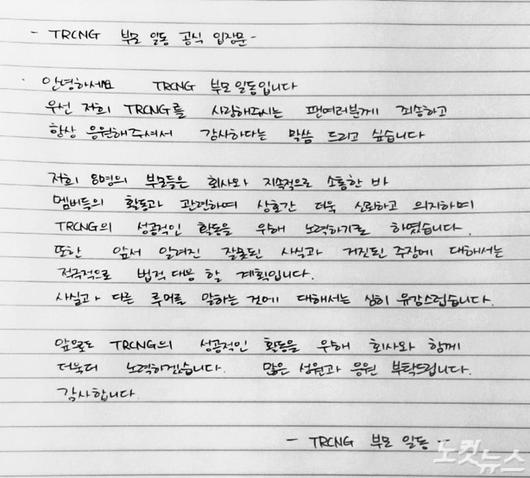 - TRCNG 부모 일동 공식 입장문 -
안녕하세요 TRCNG 부모일동입니다
우선 저희 TRCNG를 사랑해주시는 팬여러분께 죄송하고
항상 응원해주셔서 감사하다는 말씀 드리고 싶습니다
저희 8명의 부모들은 회사와 지속적으로 소통한 바
멤버들의 활동과 관련하여 상호간 더욱 신뢰하고 의지하며
TRCNG의 성공적인 활동을 위해 노력하기로 하였습니다.
또한 앞서 알려진 잘못된 사실과 거짓된 주장에 대해서는
적극적으로 법적대응 할 계획입니다.
사실과 다른 루머를 말하는 것에 대해서는 심히 유감스럽습니다.
앞으로도 TRCNG의 성공적인 활동을 위해 회사와 함께
더욱더 노력하겠습니다. 많은 성원과 응원 부탁드립니다.
감사합니다.
- TRCNG 부모 일동 -
노컷뉴스